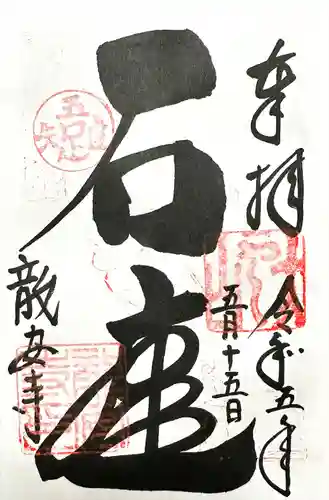 奉拝
令和五年
五月十五日
石庭
龍安寺
吾唯足知